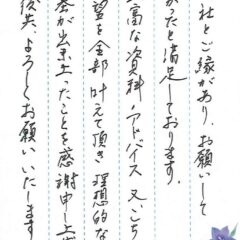 社とご縁があり、お願いして
かったと満足しております。
富な資料、アドバイス 又こち
望を全部叶えて頂き 理想的な
が出来上ったことを感謝申し上
後共、よろしくお願いいたします